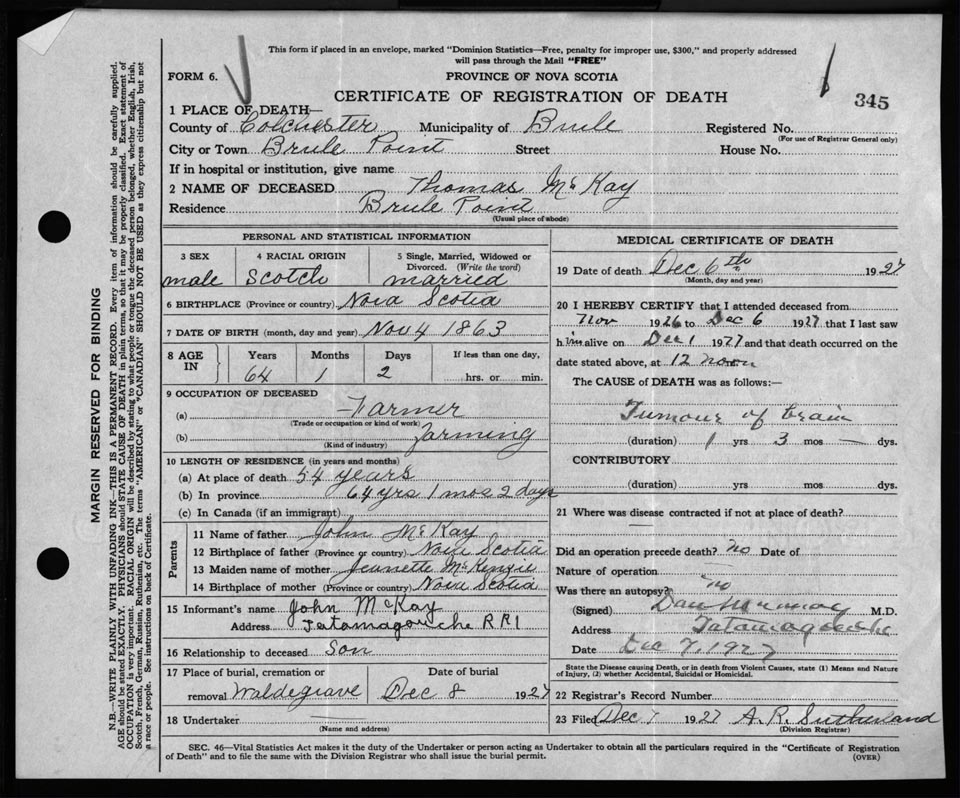 This form if placed in an envelope, marked "Dominion Statistics—Free, penalty for improper use, $300," and properly addressed
will pass through the Mail "FREE"
FORM 6.
PROVINCE OF NOVA SCOTIA
CERTIFICATE OF REGISTRATION OF DEATH
345
1 PLACE OF DEATH—
County of Colchester Municipality of Brule Registered No.
(For use of Registrar General only)
City or Town Brule Point Street House No.
If in hospital or institution, give name
2 NAME OF DECEASED Thomas McKay
Residence Brule Point
(Usual place of abode)
PERSONAL AND STATISTICAL INFORMATION
3 SEX 4 RACIAL ORIGIN 5 Single, Married, Widowed or
Divorced. (Write the word)
male Scotch married
6 BIRTHPLACE (Province or country) Nova Scotia
7 DATE OF BIRTH (month, day and year) Nov 4 1863
8 AGE IN Years Months Days If less than one day,
64 1 2 hrs. or min.
9 OCCUPATION OF DECEASED
(a) Farmer
(Trade or occupation or kind of work)
(b) Farming
(Kind of industry)
10 LENGTH OF RESIDENCE (in years and months)
(a) At place of death 54 years
(b) In province 64 yrs 1 mos 2 days
(c) In Canada (if an immigrant)
Parents
11 Name of father John McKay
12 Birthplace of father (Province or country) Nova Scotia
13 Maiden name of mother Jeanette McKenzie
14 Birthplace of mother (Province or country) Nova Scotia
15 Informant's name John McKay
Address Tatamagouche RR1
16 Relationship to deceased Son
17 Place of burial, cremation or Date of burial
removal Waldegrave Dec 8 1927
18 Undertaker
(Name and address)
MEDICAL CERTIFICATE OF DEATH
19 Date of death Dec 6th 1927
(Month, day and year)
20 I HEREBY CERTIFY that I attended deceased from
Nov 1926 to Dec 6 1927 that I last saw
him alive on Dec 1 1927 and that death occurred on the
date stated above, at 12 noon
The CAUSE of DEATH was as follows:—
Tumour of brain
(duration) 1 yrs 3 mos — dys.
CONTRIBUTORY
(duration) yrs mos dys.
21 Where was disease contracted if not at place of death?
Did an operation precede death? no Date of
Nature of operation
Was there an autopsy? no
(Signed) M.D.
Address Tatamagouche
Date Dec 7, 1927
State the Disease causing Death, or in death from Violent Causes, state (1) Means and Nature
of Injury, (2) whether Accidental, Suicidal or Homicidal.
22 Registrar's Record Number
23 Filed Dec 7 1927 A. R. Sutherland
(Division Registrar)
SEC. 46—Vital Statistics Act makes it the duty of the Undertaker or person acting as Undertaker to obtain all the particulars required in the "Certificate of Registration
of Death" and to file the same with the Division Registrar who shall issue the burial permit.
(OVER)
MARGIN RESERVED FOR BINDING
N.B.—WRITE PLAINLY WITH UNFADING INK—THIS IS A PERMANENT RECORD. Every item of information should be carefully supplied.
AGE should be stated EXACTLY. PHYSICIANS should STATE CAUSE OF DEATH in plain terms, so that it may be properly classified. Exact statement of
OCCUPATION is very important. RACIAL ORIGIN will be described by stating to what people or tongue the deceased person belonged, whether English, Irish,
Scotch, French, German, Russian, Ruthenian, etc. The terms "AMERICAN" or "CANADIAN" SHOULD NOT BE USED as they express citizenship but not
a race or people. See instructions on back of Certificate.